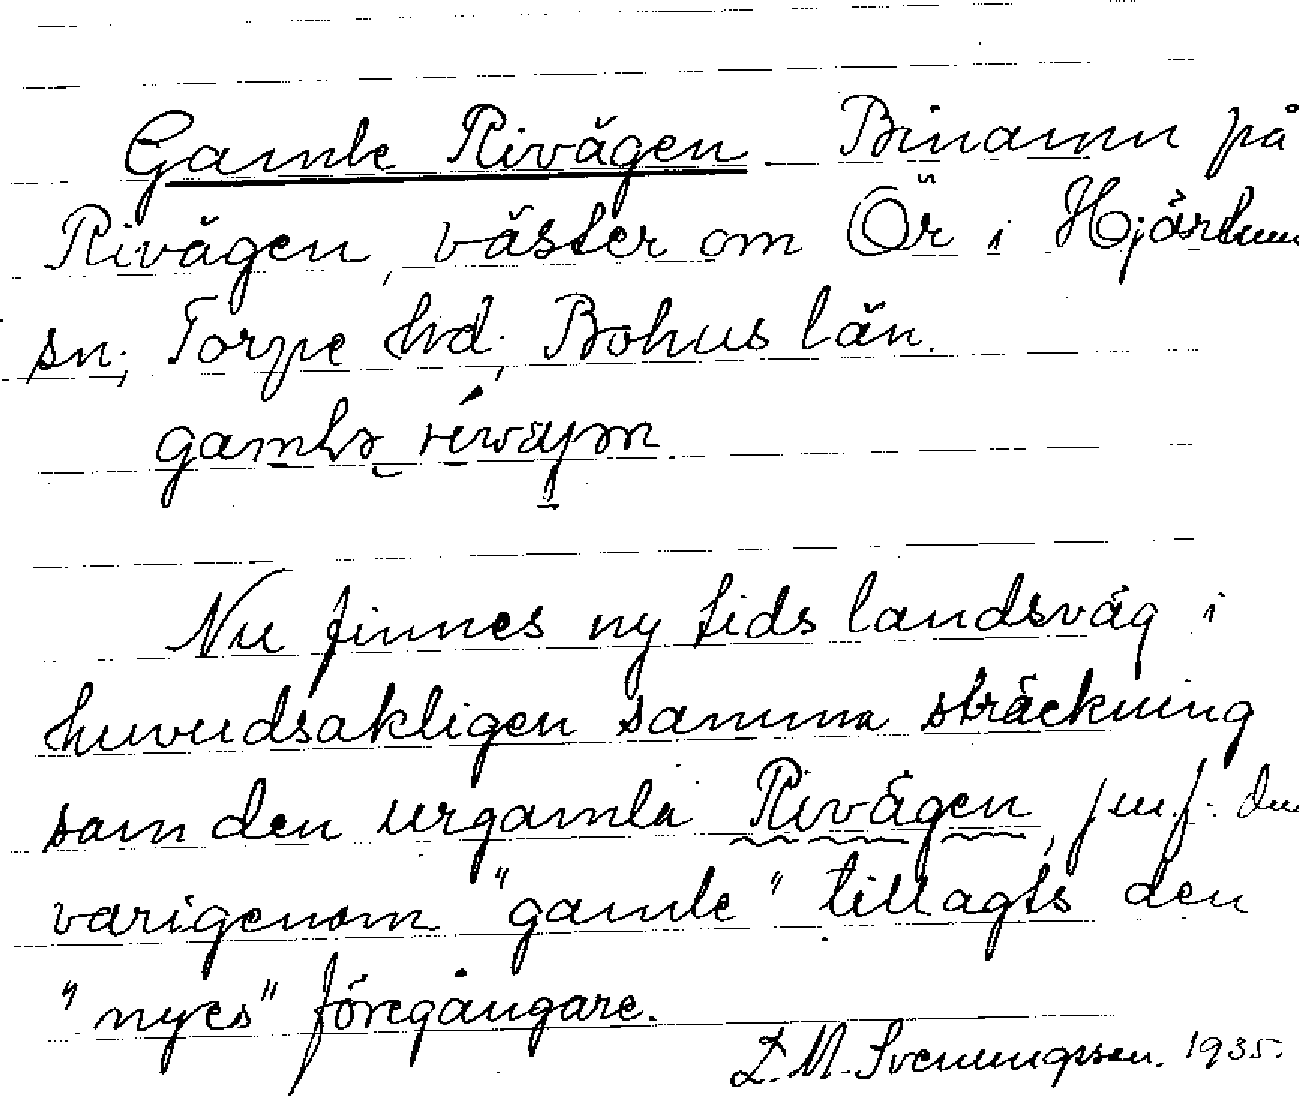 Gamle Rivägen Binamn på
Rivägen, väster om Ör i Hjärtum
sn; Torpe hd; Bohus län.
Nu finnes ny tids landsväg i
huvudsakligen samma sträckning
som den urgamla Rivägen, jmf. du
varigenom "gamle" tillagts den
"nyes" föregångare.
L. M. Svenungsson. 1935.